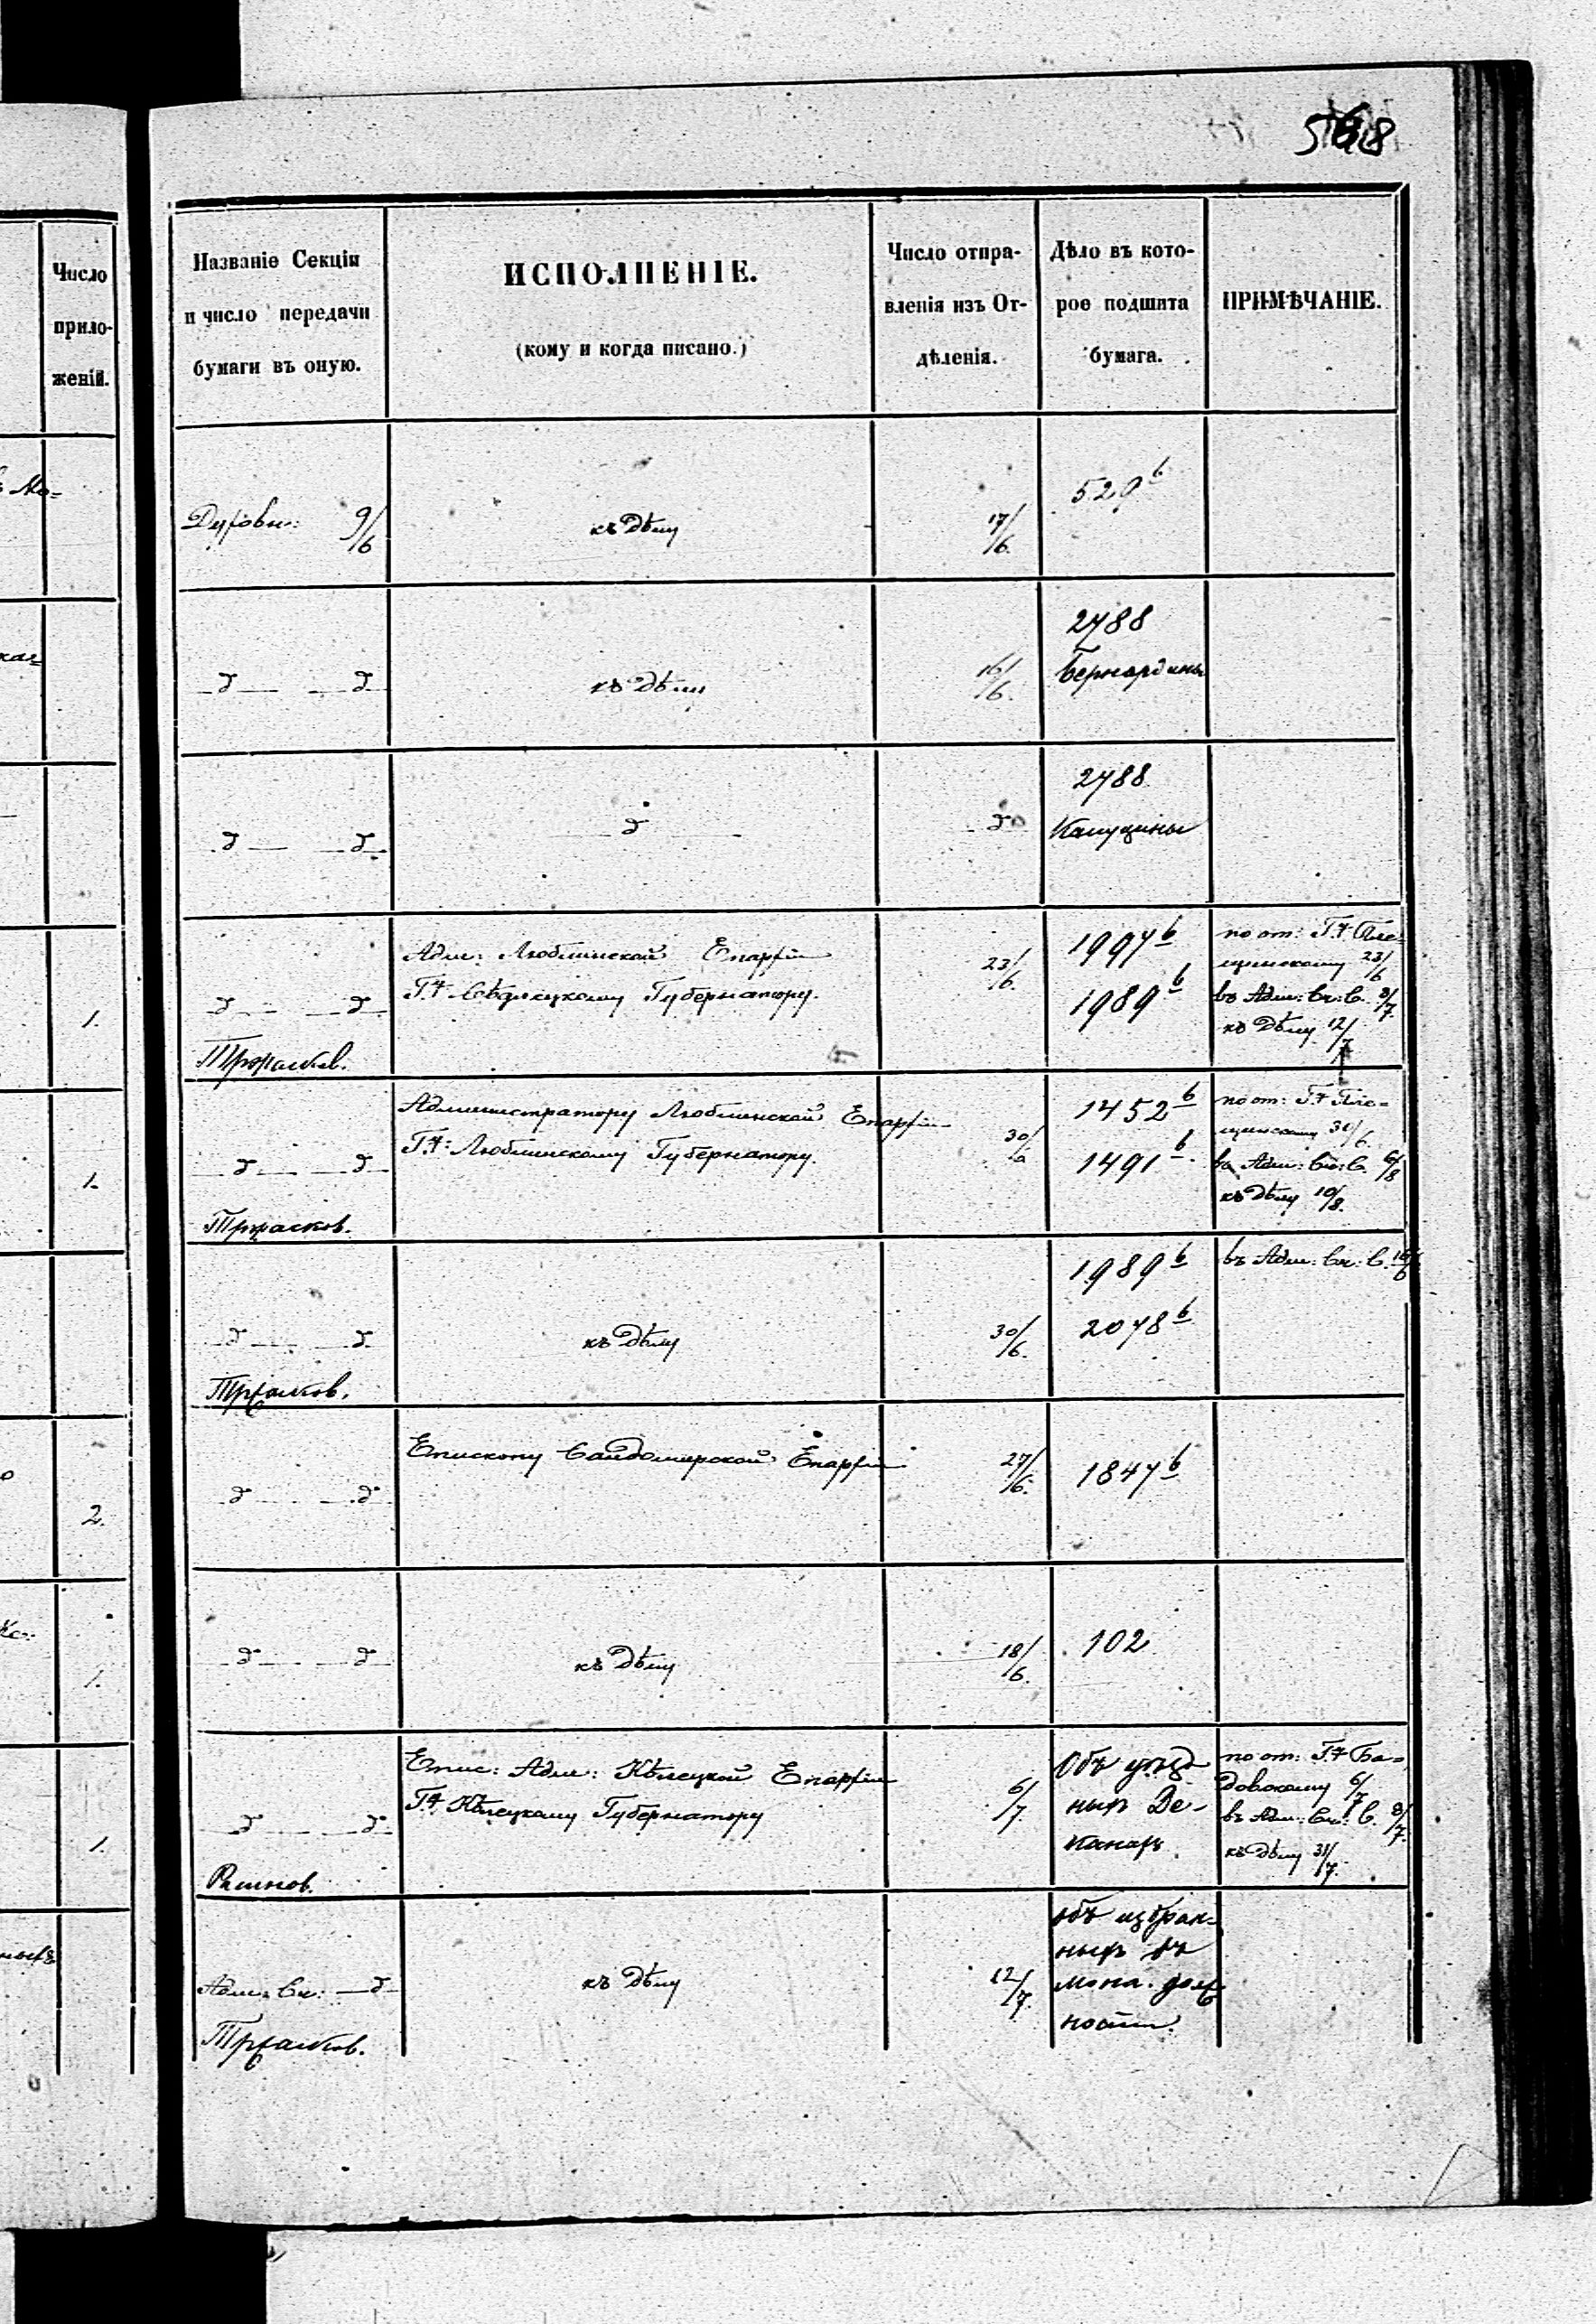 568
Число
прило-
женій.
Названіе Секціи
и число передачи
бумаги въ оную.
ИСПОЛНЕНІЕ.
(кому и когда писано.)
Число отпра-
вленія изъ От-
дѣленія.
Дѣло въ кото-
рое подшита
бумага.
ПРИМѢЧАНІЕ.
Духовн: 9/6
къ Дѣлу
17/6.
529 б
д д
къ Дѣлу
16/6.
2788
Бернардины
д д
д
д
2788
Капуцины
1.
д д
Адм: Люблинской Епархіи
Г.+ Сѣдлецкому Губернатору.
23/6.
1997 б
1989 б
по от: Г.+
23/6
въ Адм: Ск: С.
къ Дѣлу 12/7
1.
д д
Администратору Люблинской Епархіи
Г.+: Люблинскому Губернатору.
30/6
1452 б
1491 б.
по от: Г.+
въ Адм: Ск: С. 6/8
къ Дѣлу 10/8.
д д
къ Дѣлу
30/6.
1989 б
2078 б
въ Адм: Ск: С.
2.
д д
Епископу Сандомирской Епархіи
27/6.
1847 б
1.
д д
къ Дѣлу
18/6.
102
1.
д д
Епис: Адм: Кѣлецкой Епархіи
Г.+ Кѣлецкому Губернатору
6/7.
Объ уѣзд-
ныхъ Де-
канахъ
по от: Г.+
6/7
въ Адм: Ск: С. 8/7.
къ Дѣлу 31/7.
ныхъ
Адм. Ск: д
къ Дѣлу
12/7.
объ избран-
ныхъ въ
мона. долж
ности.